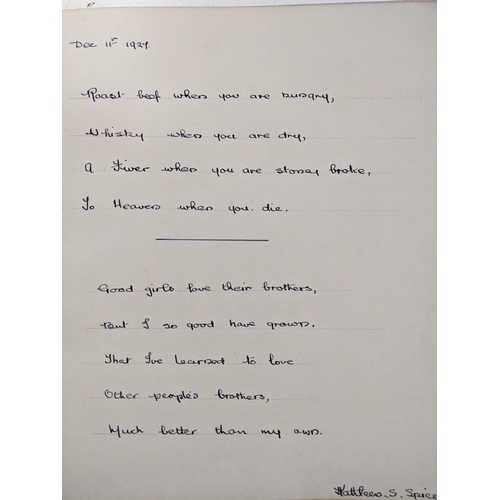 Dec 11th 1927.
Roast beef when you are hungry,
Whisky when you are dry,
A Fiver when you are stoney broke,
To Heaven when you die.
Good girls love their brothers,
But I so good have grown.
That I've learned to love
Other people's brothers,
Much better than my own.
Kathleen S. Spice